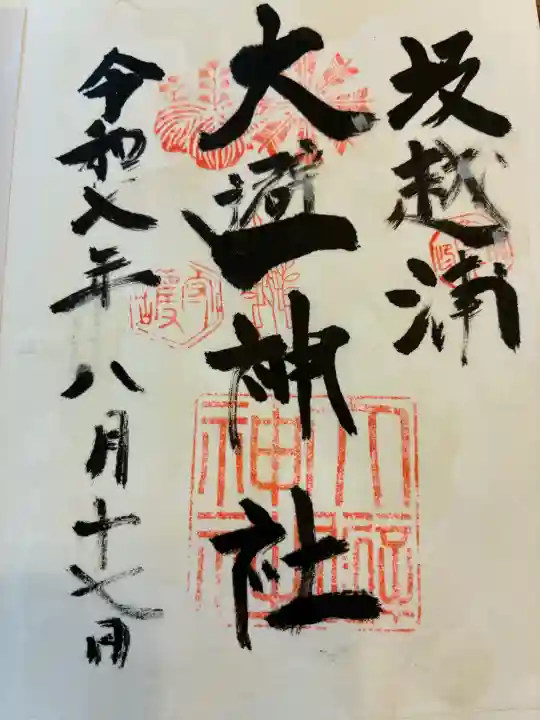 坂越浦
大避神社
令和八年八月十七日
大避
神社